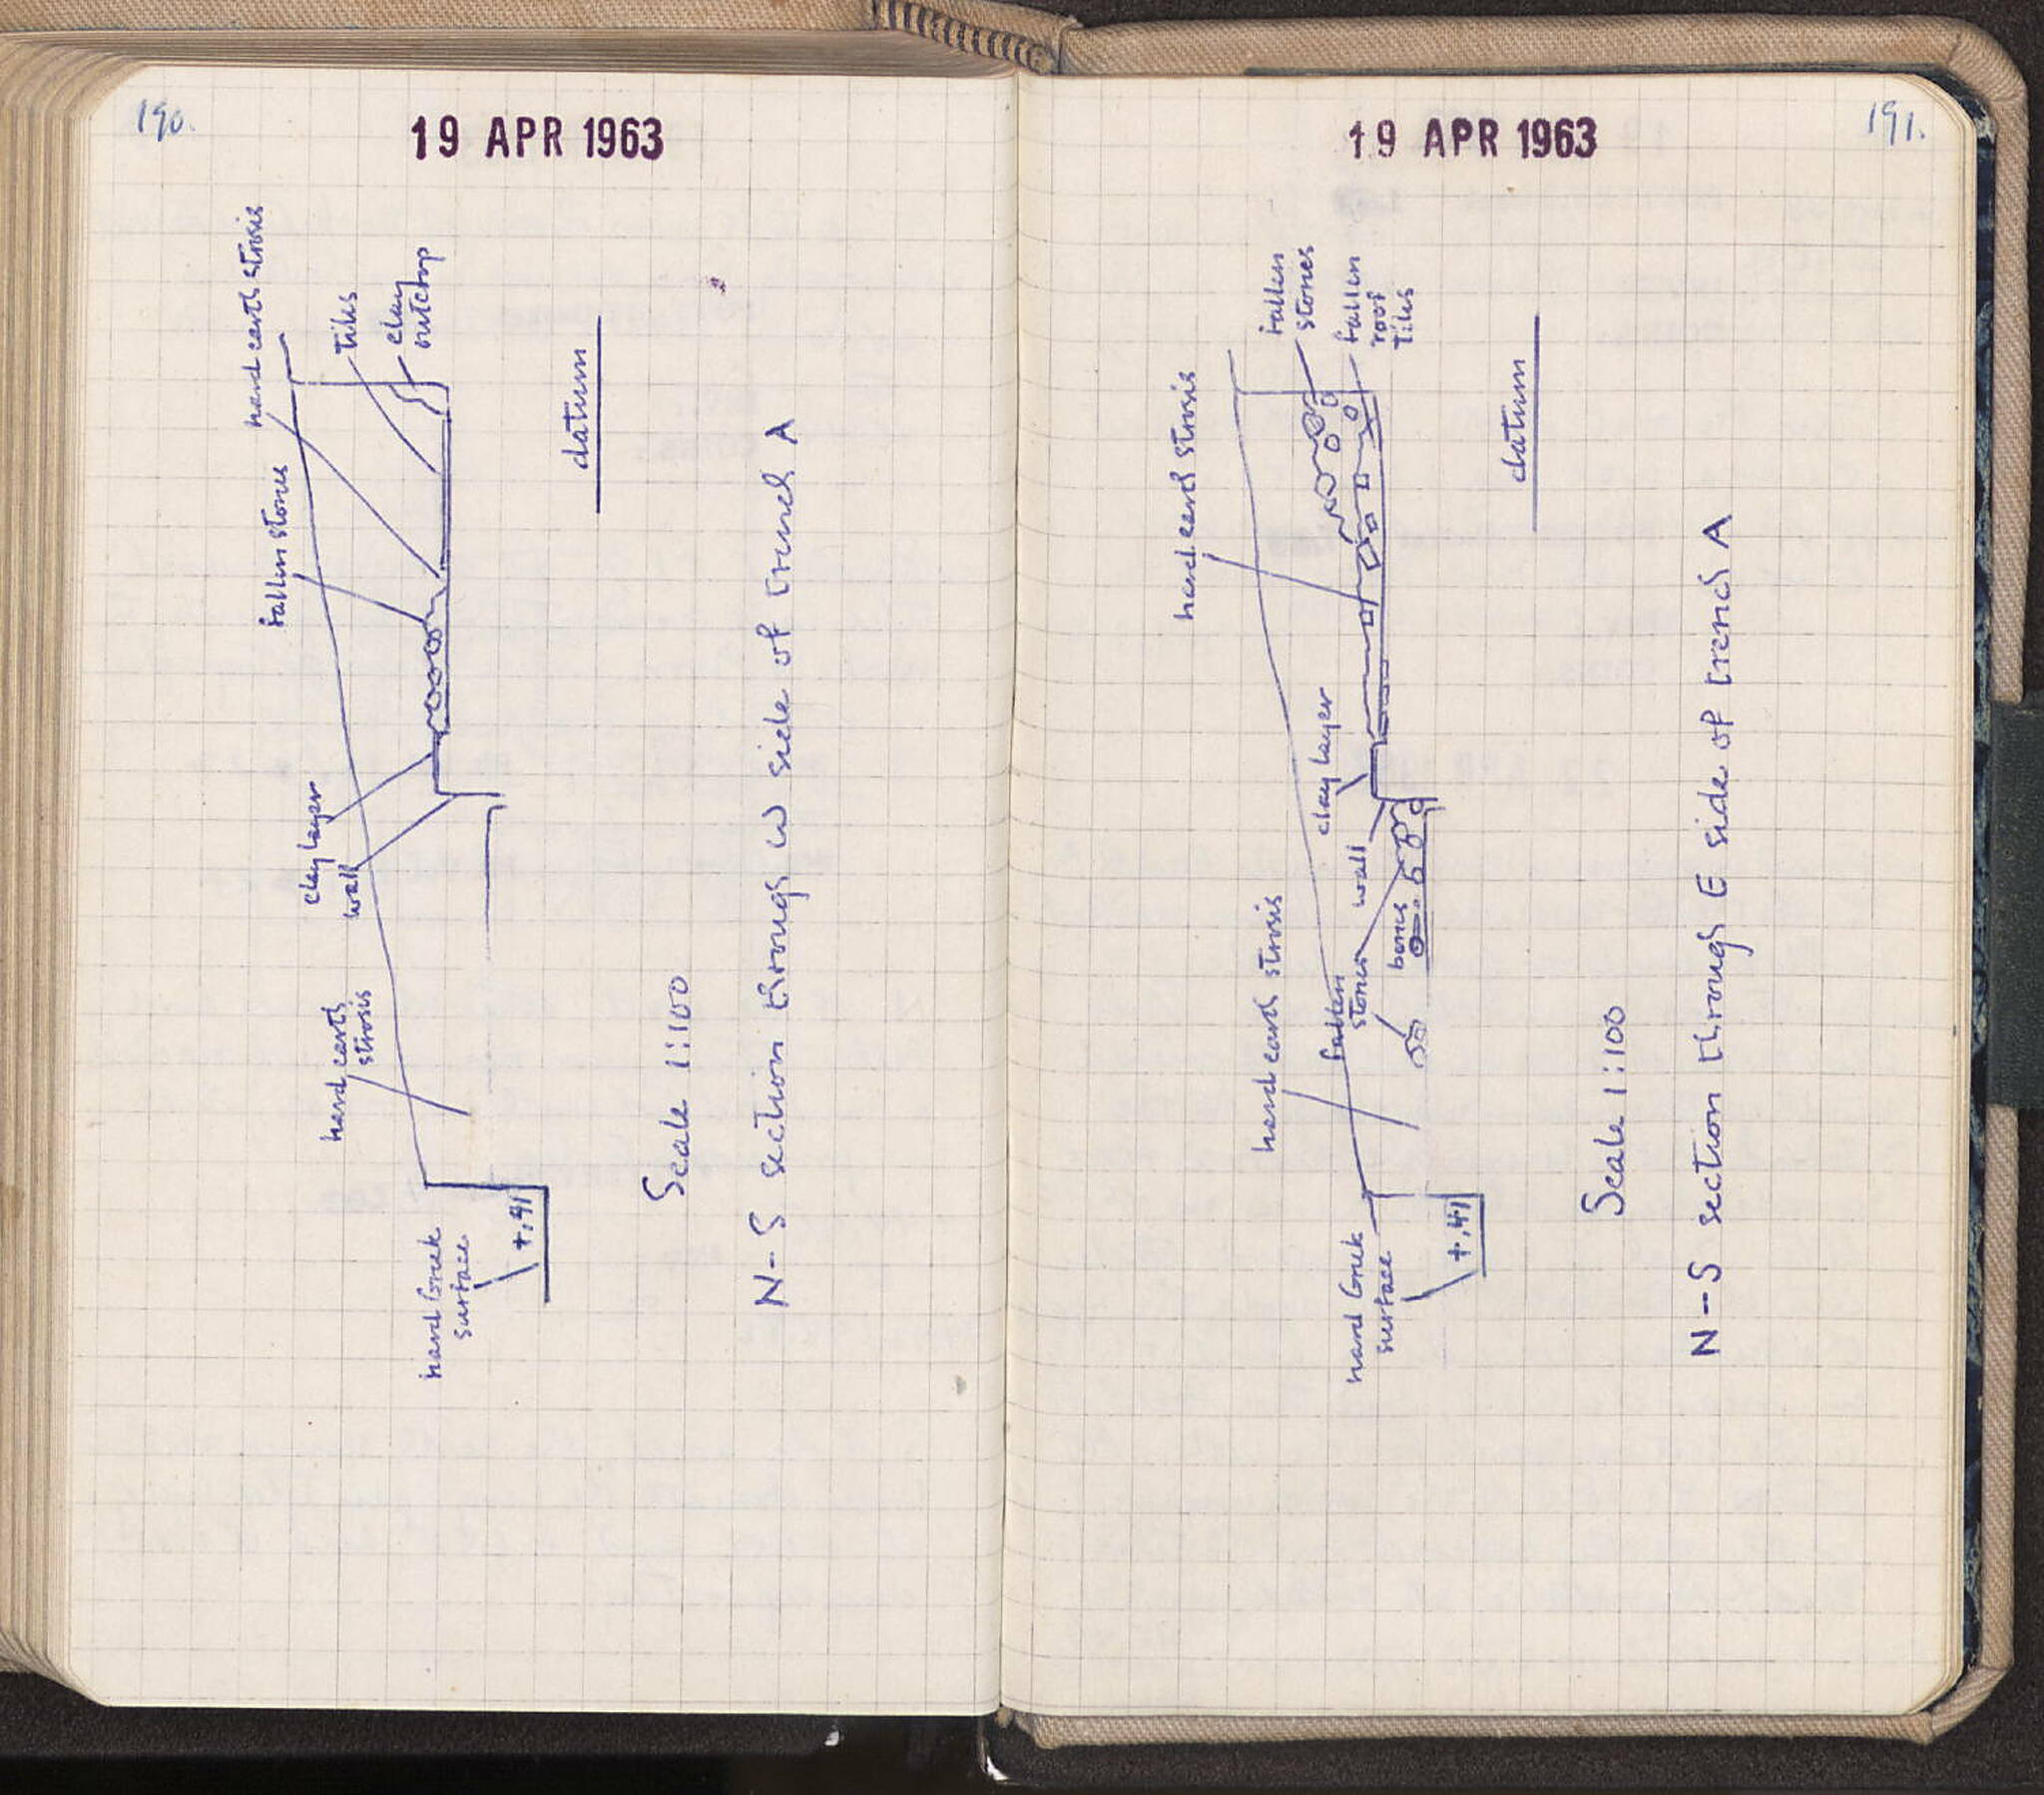 190.
19 APR 1963
hard earth strosis
tiles
clay
outcrop
fallen stones
clay layer
wall
hard earth
strosis
hard Greek
surface
+.41
datum
Scale 1:100
N-S section through W side of trench A
191.
19 APR 1963
fallen
stones
fallen
roof
tiles
hard earth strosis
clay layer
wall
bones
fallen
stones
hard earth strosis
hard Greek
surface
+.41
datum
Scale 1:100
N-S section through E side of trench A